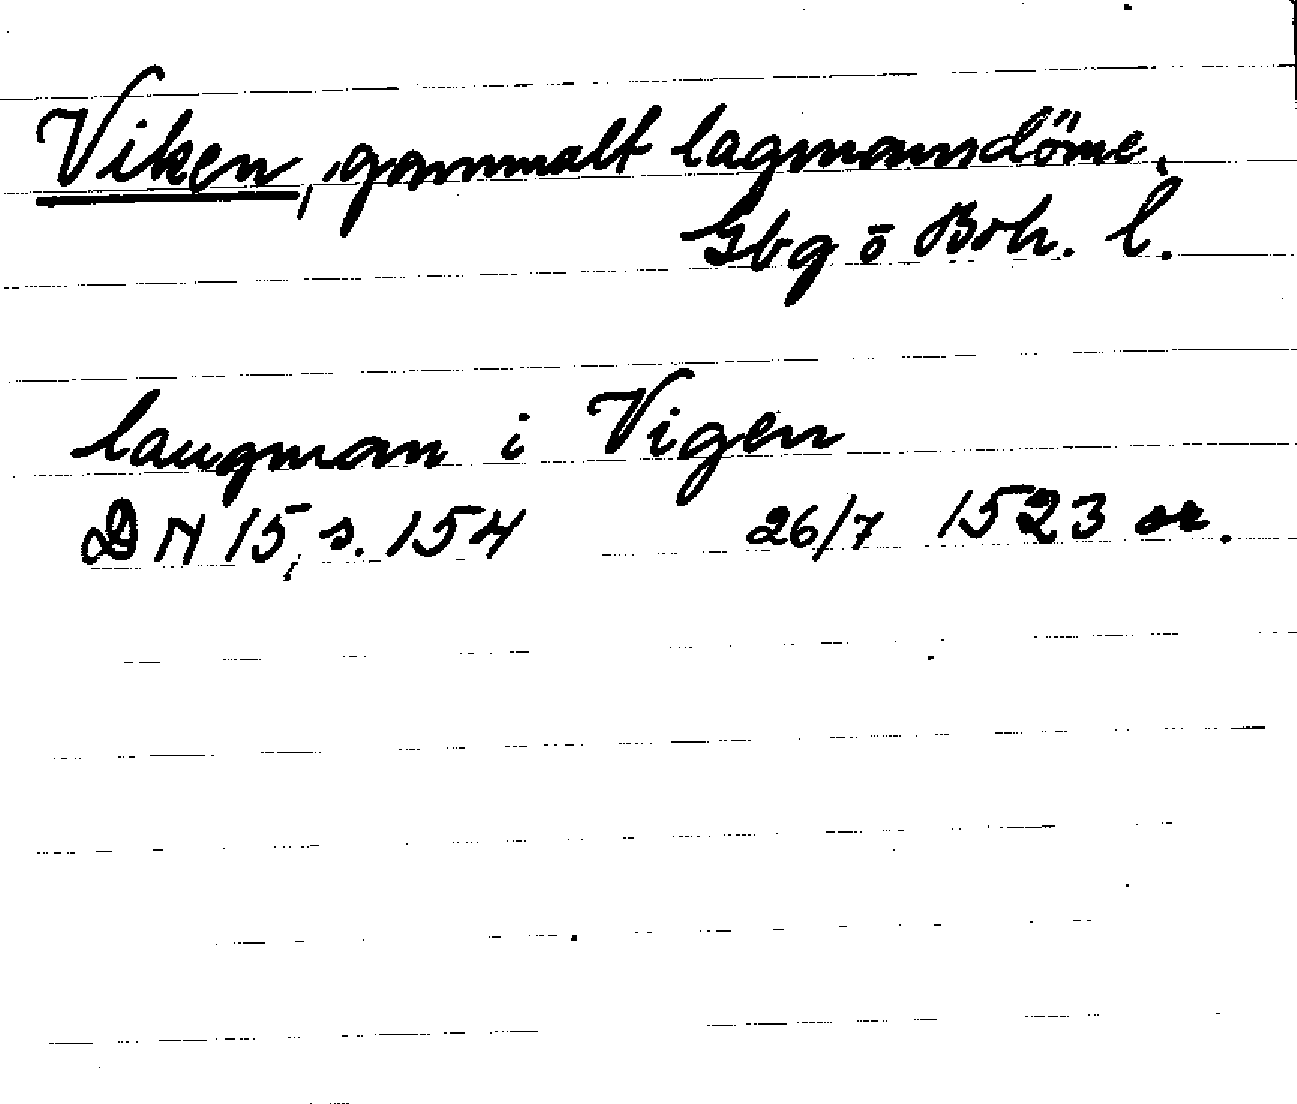 Viken, gammalt lagmansdöme,
Gbg o Boh. l.
laugman i Vigen
DN 15, s. 154 26/7 1523 or.